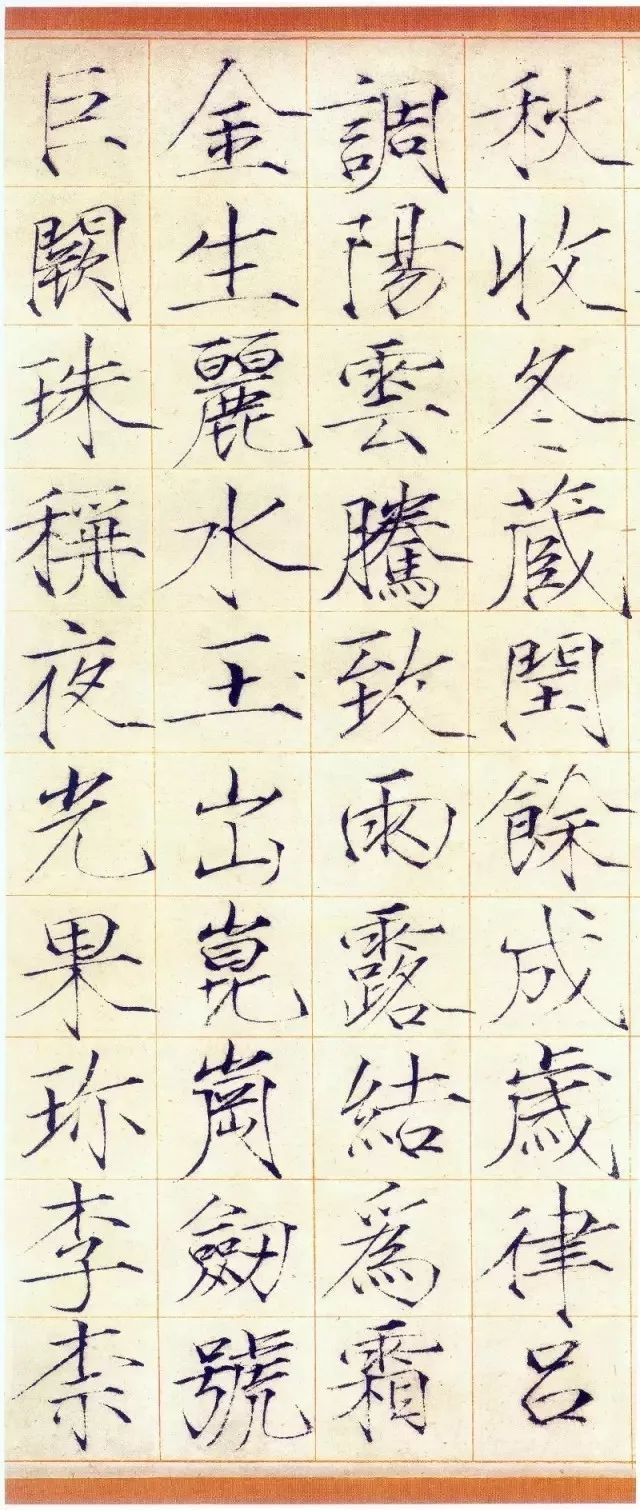 秋收冬藏閏餘成歲律吕
調陽雲騰致雨露結爲霜
金生麗水玉出崑崗劒號
巨闕珠稱夜光果珎李柰